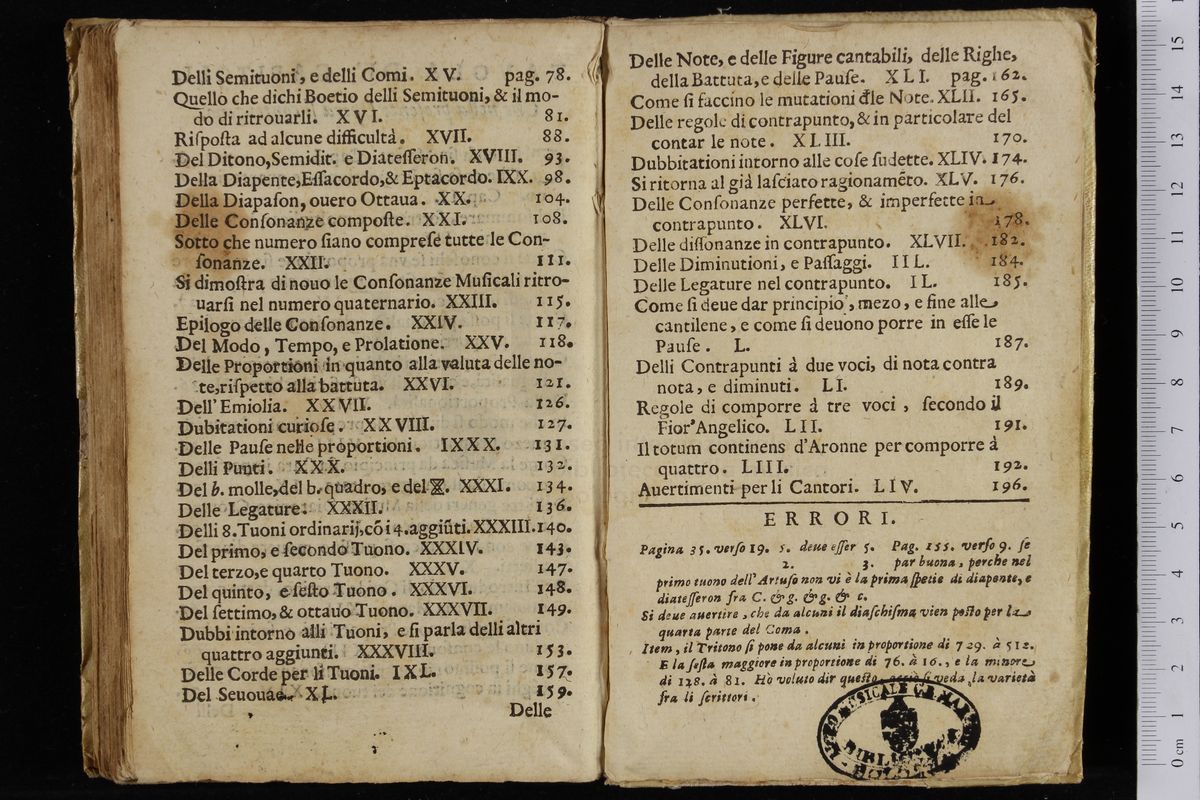 Delli Semituoni, e delli Comi. XV. pag. 78.
Quello che dichi Boetio delli Semituoni, & il mo-
do di ritrouarli. XVI. 81.
Riſpoſta ad alcune difficultà. XVII. 88.
Del Ditono, Semidit. e Diateſſeron. XVIII. 93.
Della Diapente, Eſſacordo, & Eptacordo. IXX. 98.
Della Diapaſon, ouero Ottaua. XX. 104.
Delle Conſonanze compoſte. XXI. 108.
Sotto che numero ſiano compreſe tutte le Con-
ſonanze. XXII. 111.
Si dimoſtra di nouo le Conſonanze Muſicali ritro-
uarſi nel numero quaternario. XXIII. 115.
Epilogo delle Conſonanze. XXIV. 117.
Del Modo, Tempo, e Prolatione. XXV. 118.
Delle Proportioni in quanto alla valuta delle no-
te, riſpetto alla battuta. XXVI. 121.
Dell'Emiolia. XXVII. 126.
Dubitationi curioſe. XXVIII. 127.
Delle Pauſe nelle proportioni. IXXX. 131.
Delli Punti. XXX. 132.
Del b. molle, del b. quadro, e del . XXXI. 134.
Delle Legature. XXXII. 136.
Delli 8. Tuoni ordinarij, cõ i 4. aggiũti. XXXIII. 140.
Del primo, e ſecondo Tuono. XXXIV. 143.
Del terzo, e quarto Tuono. XXXV. 147.
Del quinto, e ſeſto Tuono. XXXVI. 148.
Del ſettimo, & ottauo Tuono. XXXVII. 149.
Dubbi intorno alli Tuoni, e ſi parla delli altri
quattro aggiunti. XXXVIII. 153.
Delle Corde per li Tuoni. IXL. 157.
Del Seuouae. XL. 159.
Delle
Delle Note, e delle Figure cantabili, delle Righe,
della Battuta, e delle Pauſe. XLI. pag. 162.
Come ſi faccino le mutationi dlle Note. XLII. 165.
Delle regole di contrapunto, & in particolare del
contar le note. XLIII. 170.
Dubbitationi intorno alle coſe ſudette. XLIV. 174.
Si ritorna al già laſciato ragionamẽto. XLV. 176.
Delle Conſonanze perfette, & imperfette in
contrapunto. XLVI. 178.
Delle diſſonanze in contrapunto. XLVII. 182.
Delle Diminutioni, e Paſſaggi. IIL. 184.
Delle Legature nel contrapunto. IL. 185.
Come ſi deue dar principio, mezo, e fine alle
cantilene, e come ſi deuono porre in eſſe le
Pauſe. L. 187.
Delli Contrapunti à due voci, di nota contra
nota, e diminuti. LI. 189.
Regole di comporre à tre voci, ſecondo il
Fior'Angelico. LII. 191.
Il totum continens d'Aronne per comporre à
quattro. LIII. 192.
Auertimenti per li Cantori. LIV. 196.
ERRORI.
Pagina 35. verſo 19. 5. deue eſſer 5. Pag. 155. verſo 9. ſe
2. 3. par buona, perche nel
primo tuono dell'Artuſo non vi è la prima ſpetie di diapente, e
diateſſeron fra C. & g. & g. & c.
Si deue auertire, che da alcuni il diaſchiſma vien poſto per la
quarta parte del Coma.
Item, il Tritono ſi pone da alcuni in proportione di 729. à 512.
E la ſeſta maggiore in proportione di 76. à 16., e la minore
di 128. à 81. Ho voluto dir queſto, acciò ſi veda la varietà
fra li ſcrittori.
0 cm 1 2 3 4 5 6 7 8 9 10 11 12 13 14 15